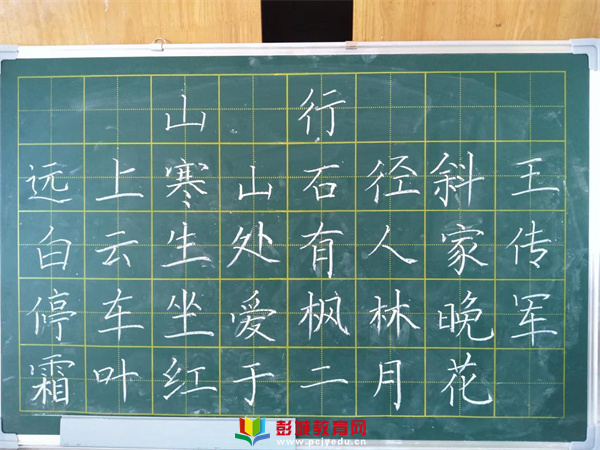 山行
远上寒山石径斜
白云生处有人家
停车坐爱枫林晚
霜叶红于二月花
王传军
彭城教育网
www.pcjyedu.cn